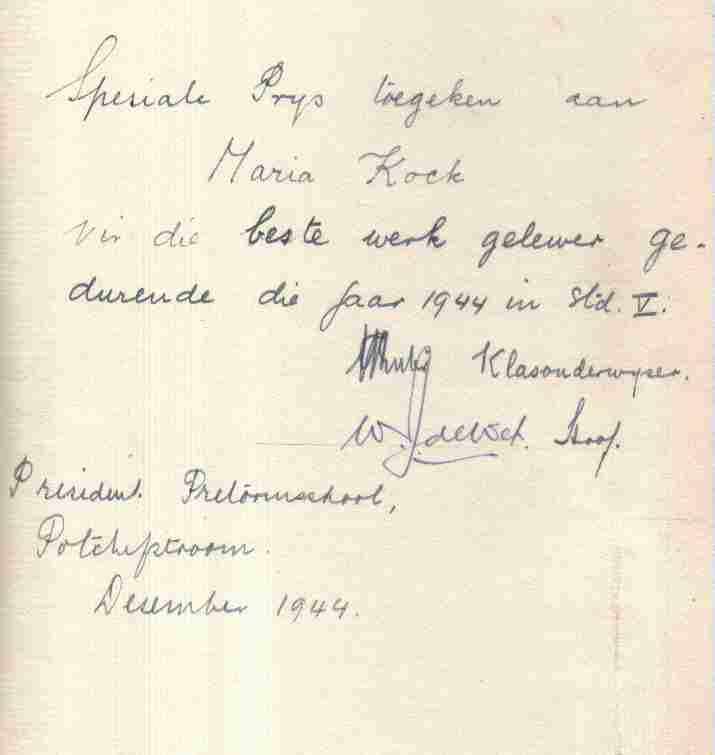 Spesiale Prys toegeken aan
Maria Kock
vir die beste werk gelewer ge-
durende die jaar 1944 in Std. V.
Klasonderwyser.
W. J. de Wet. Hoof.
President Pretoriusskool,
Potchefstroom.
Desember 1944.